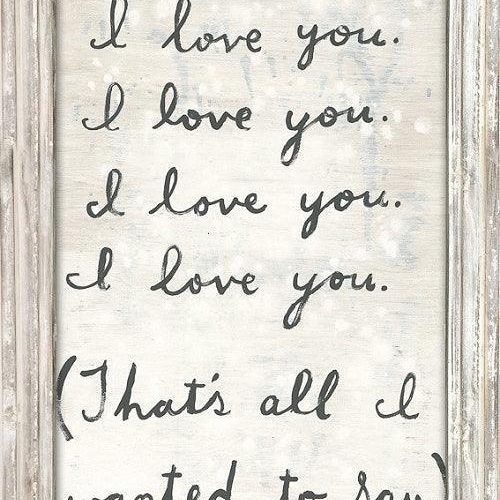 I love you.
I love you.
I love you.
I love you.
(That's all I
wanted to say)